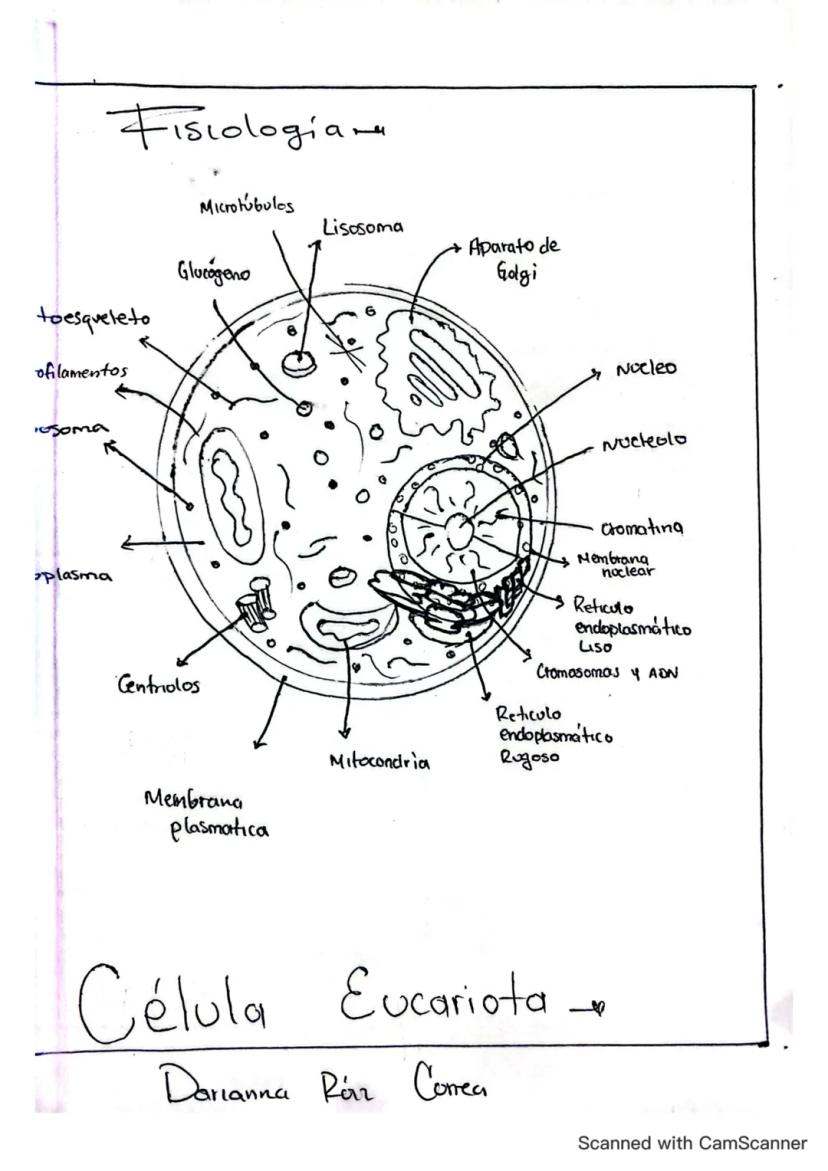 Fisiología
Microtúbulos
Lisosoma
Glucógeno
Aparato de
Golgi
toesqueleto
ofilamentos
osoma
oplasma
Núcleo
Nucleolo
Cromatina
Membrana
nuclear
Retículo
endoplasmático
Liso
Cromosomas y ADN
Retículo
endoplasmático
Rugoso
Centriolos
Mitocondria
Membrana
plasmatica
Célula Eucariota
Darianna Correa
Scanned with CamScanner